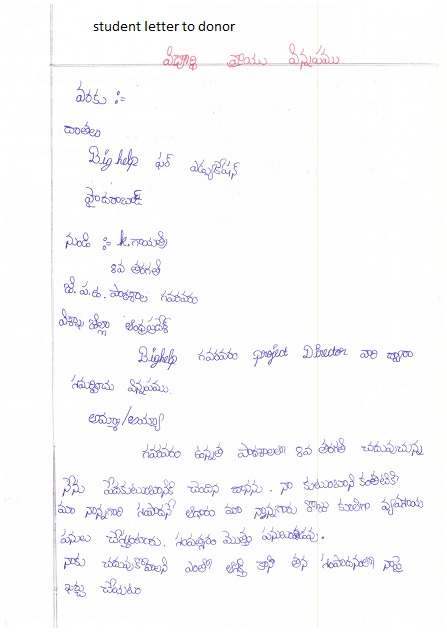 student letter to donor
విద్యార్థి వ్రాయు విన్నపము
వరకు :=
దాతలు
Bighelp ఫర్ ఎడ్యుకేషన్
హైదరాబాద్
నుండి := k.గాయత్రి
8వ తరగతి
జి.ప.ఉ. పాఠశాల గవరవరం
విశాఖ జిల్లా ఆంధ్రప్రదేశ్
Bighelp గవరవరం project Director వారి ద్వారా
సమర్పించు విన్నపము.
అమ్మా/అయ్యా
గవరవరం ఉన్నత పాఠశాలలో 8వ తరగతి చదువుచున్న
నేను పేదకుటుంబానికి చెందిన దానను. నా కుటుంబానికంతటికి
మా నాన్నగారి సంపాదనే ఆధారం మా నాన్నగారు రోజు కూలిగా వ్యవసాయ
పనులు చేస్తుంటారు. సంవత్సరం మొత్తం పనులుండవు.
నాకు చదువుకోవాలని ఎంతో ఆసక్తి కానీ తన సంపాదనలో నాపై
ఖర్చు చేయటం